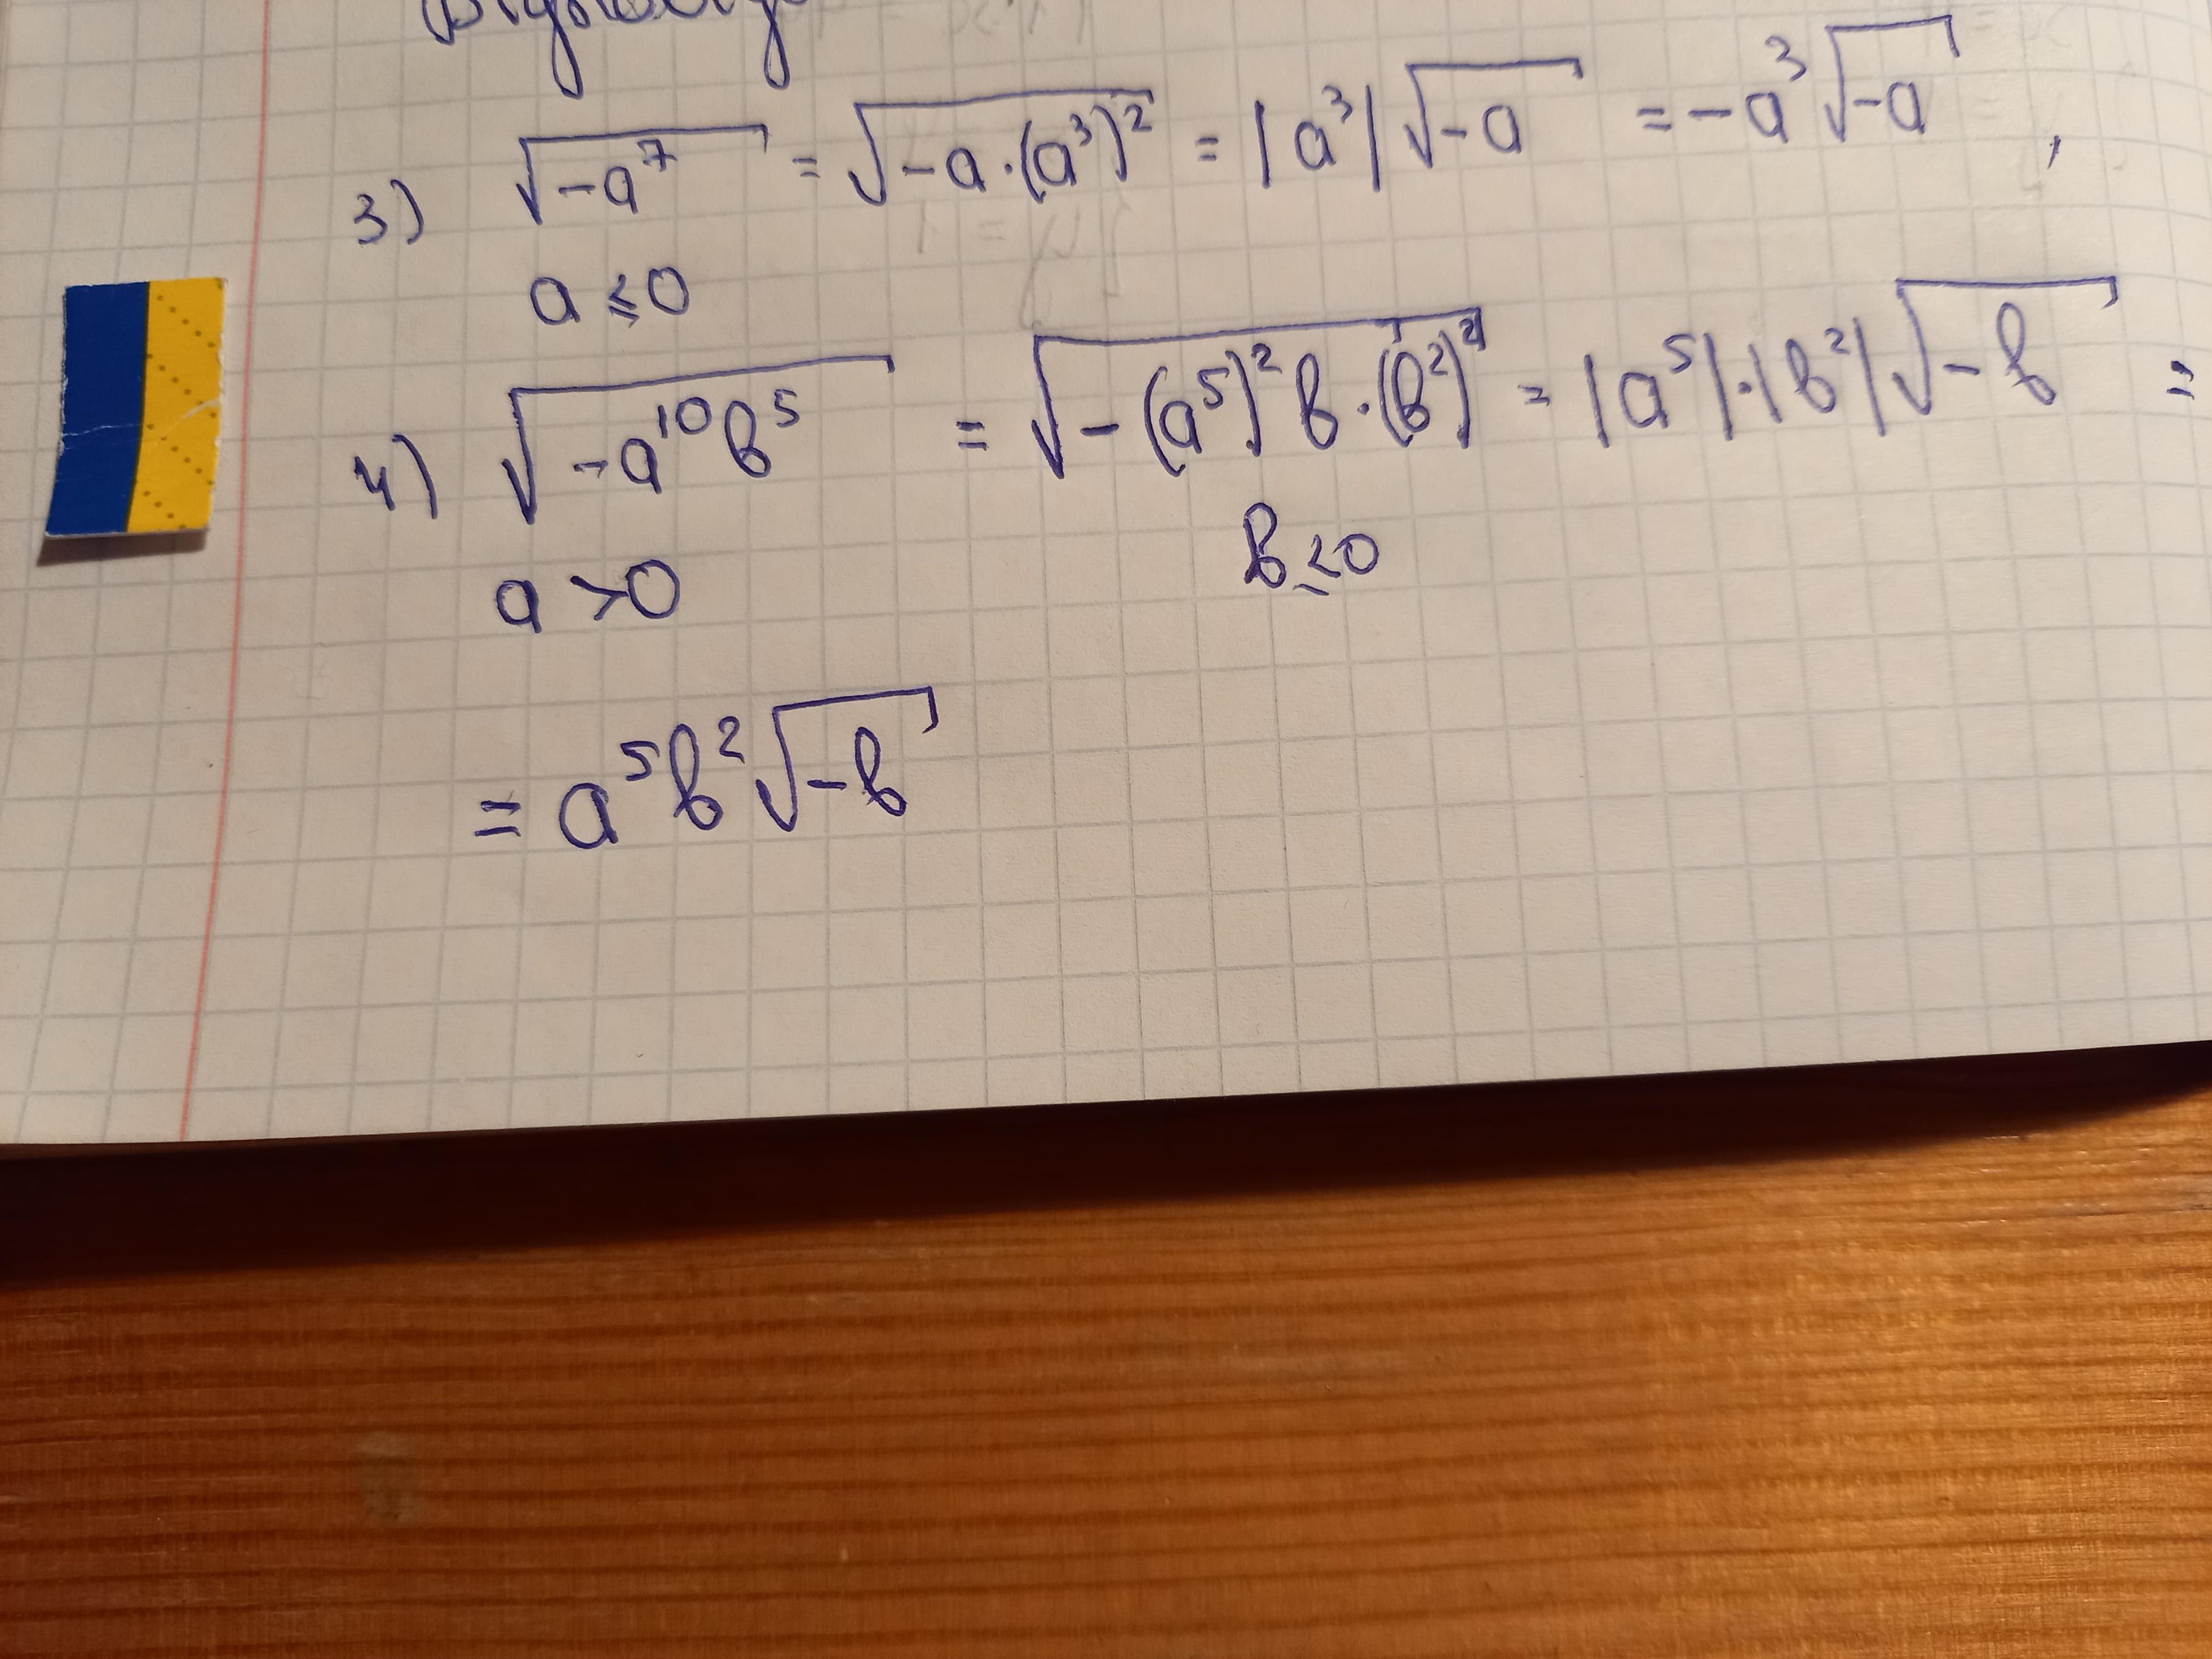 3) √(-a⁷) = √(-a·(a³)²) = |a³|√(-a) = -a³√(-a) ,
a ≤ 0
4) √(-a¹⁰b⁵) = √(-(a⁵)²b·(b²)²) = |a⁵|·|b²|√(-b) =
a > 0 b ≤ 0
= a⁵b²√(-b)